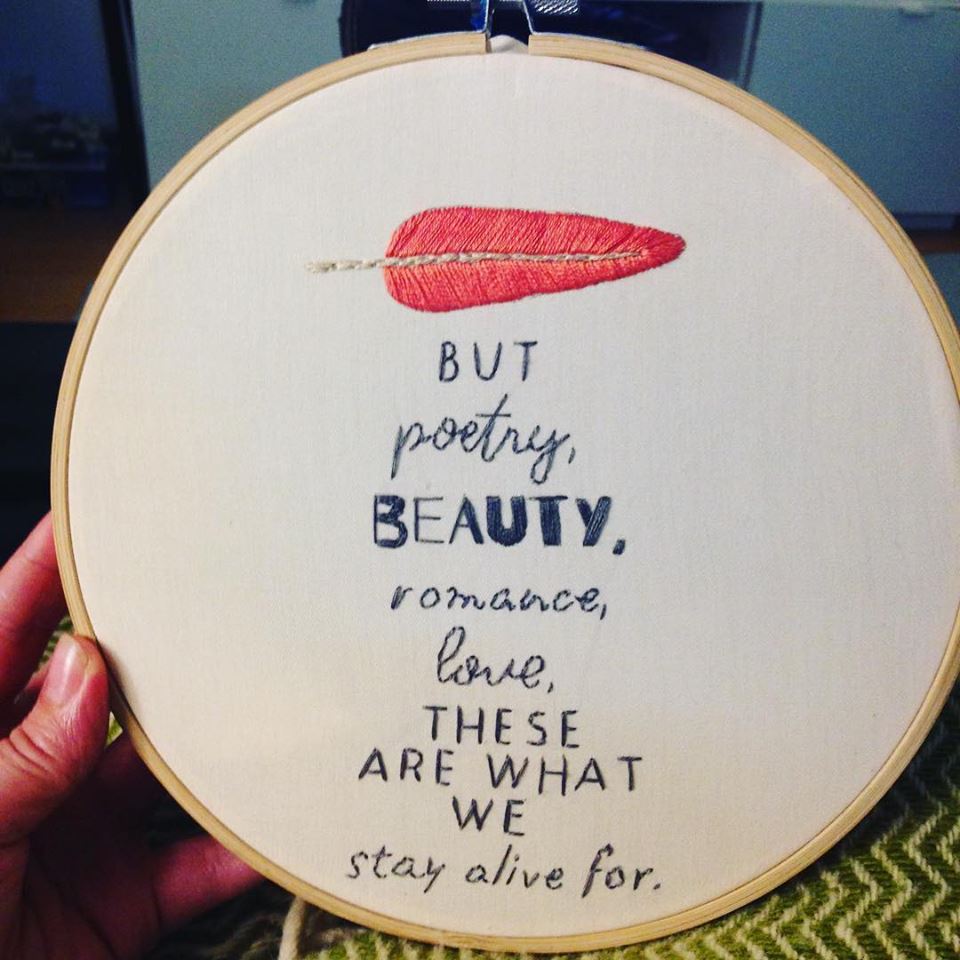 BUT
poetry,
BEAUTY,
romance,
love,
THESE
ARE WHAT
WE
stay alive for.